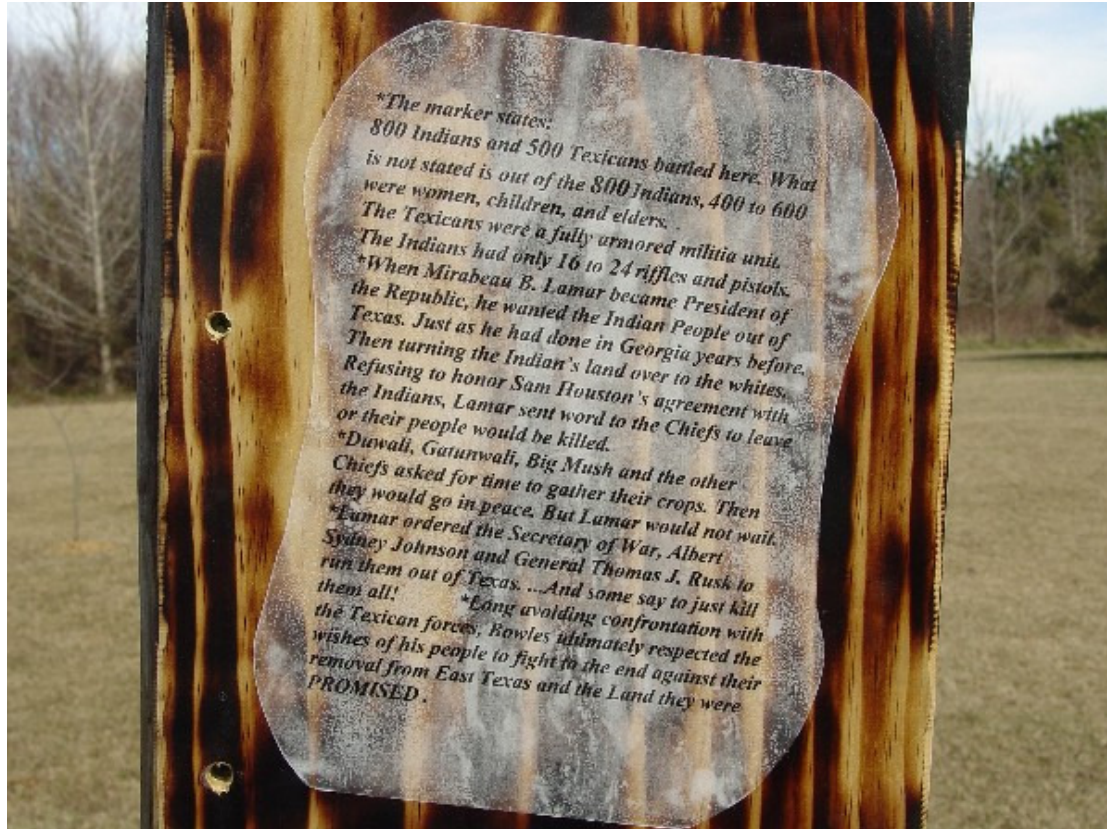 *The marker states:
800 Indians and 500 Texicans battled here. What
is not stated is out of the 800 Indians, 400 to 600
were women, children, and elders. .
The Texicans were a fully armored militia unit.
The Indians had only 16 to 24 riffles and pistols.
*When Mirabeau B. Lamar became President of
the Republic, he wanted the Indian People out of
Texas. Just as he had done in Georgia years before.
Then turning the Indian's land over to the whites.
Refusing to honor Sam Houston's agreement with
the Indians, Lamar sent word to the Chiefs to leave
or their people would be killed.
*Duwali, Gatunwali, Big Mush and the other
Chiefs asked for time to gather their crops. Then
they would go in peace. But Lamar would not wait.
*Lamar ordered the Secretary of War, Albert
Sydney Johnson and General Thomas J. Rusk to
run them out of Texas. ...And some say to just kill
them all! *Long avoiding confrontation with
the Texican forces, Bowles ultimately respected the
wishes of his people to fight to the end against their
removal from East Texas and the Land they were
PROMISED .